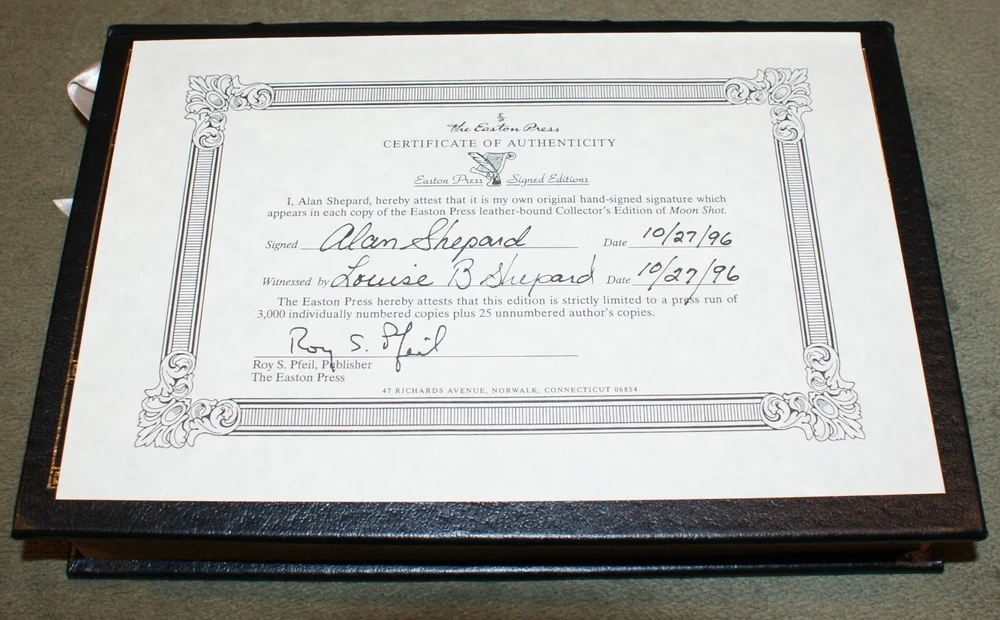 The Easton Press
CERTIFICATE OF AUTHENTICITY
Easton Press Signed Editions
I, Alan Shepard, hereby attest that it is my own original hand-signed signature which
appears in each copy of the Easton Press leather-bound Collector's Edition of Moon Shot.
Signed Alan Shepard Date 10/27/96
Witnessed by Louise B Shepard Date 10/27/96
The Easton Press hereby attests that this edition is strictly limited to a press run of
3,000 individually numbered copies plus 25 unnumbered author's copies.
Roy S. Pfeil
Roy S. Pfeil, Publisher
The Easton Press
47 RICHARDS AVENUE, NORWALK, CONNECTICUT 06854